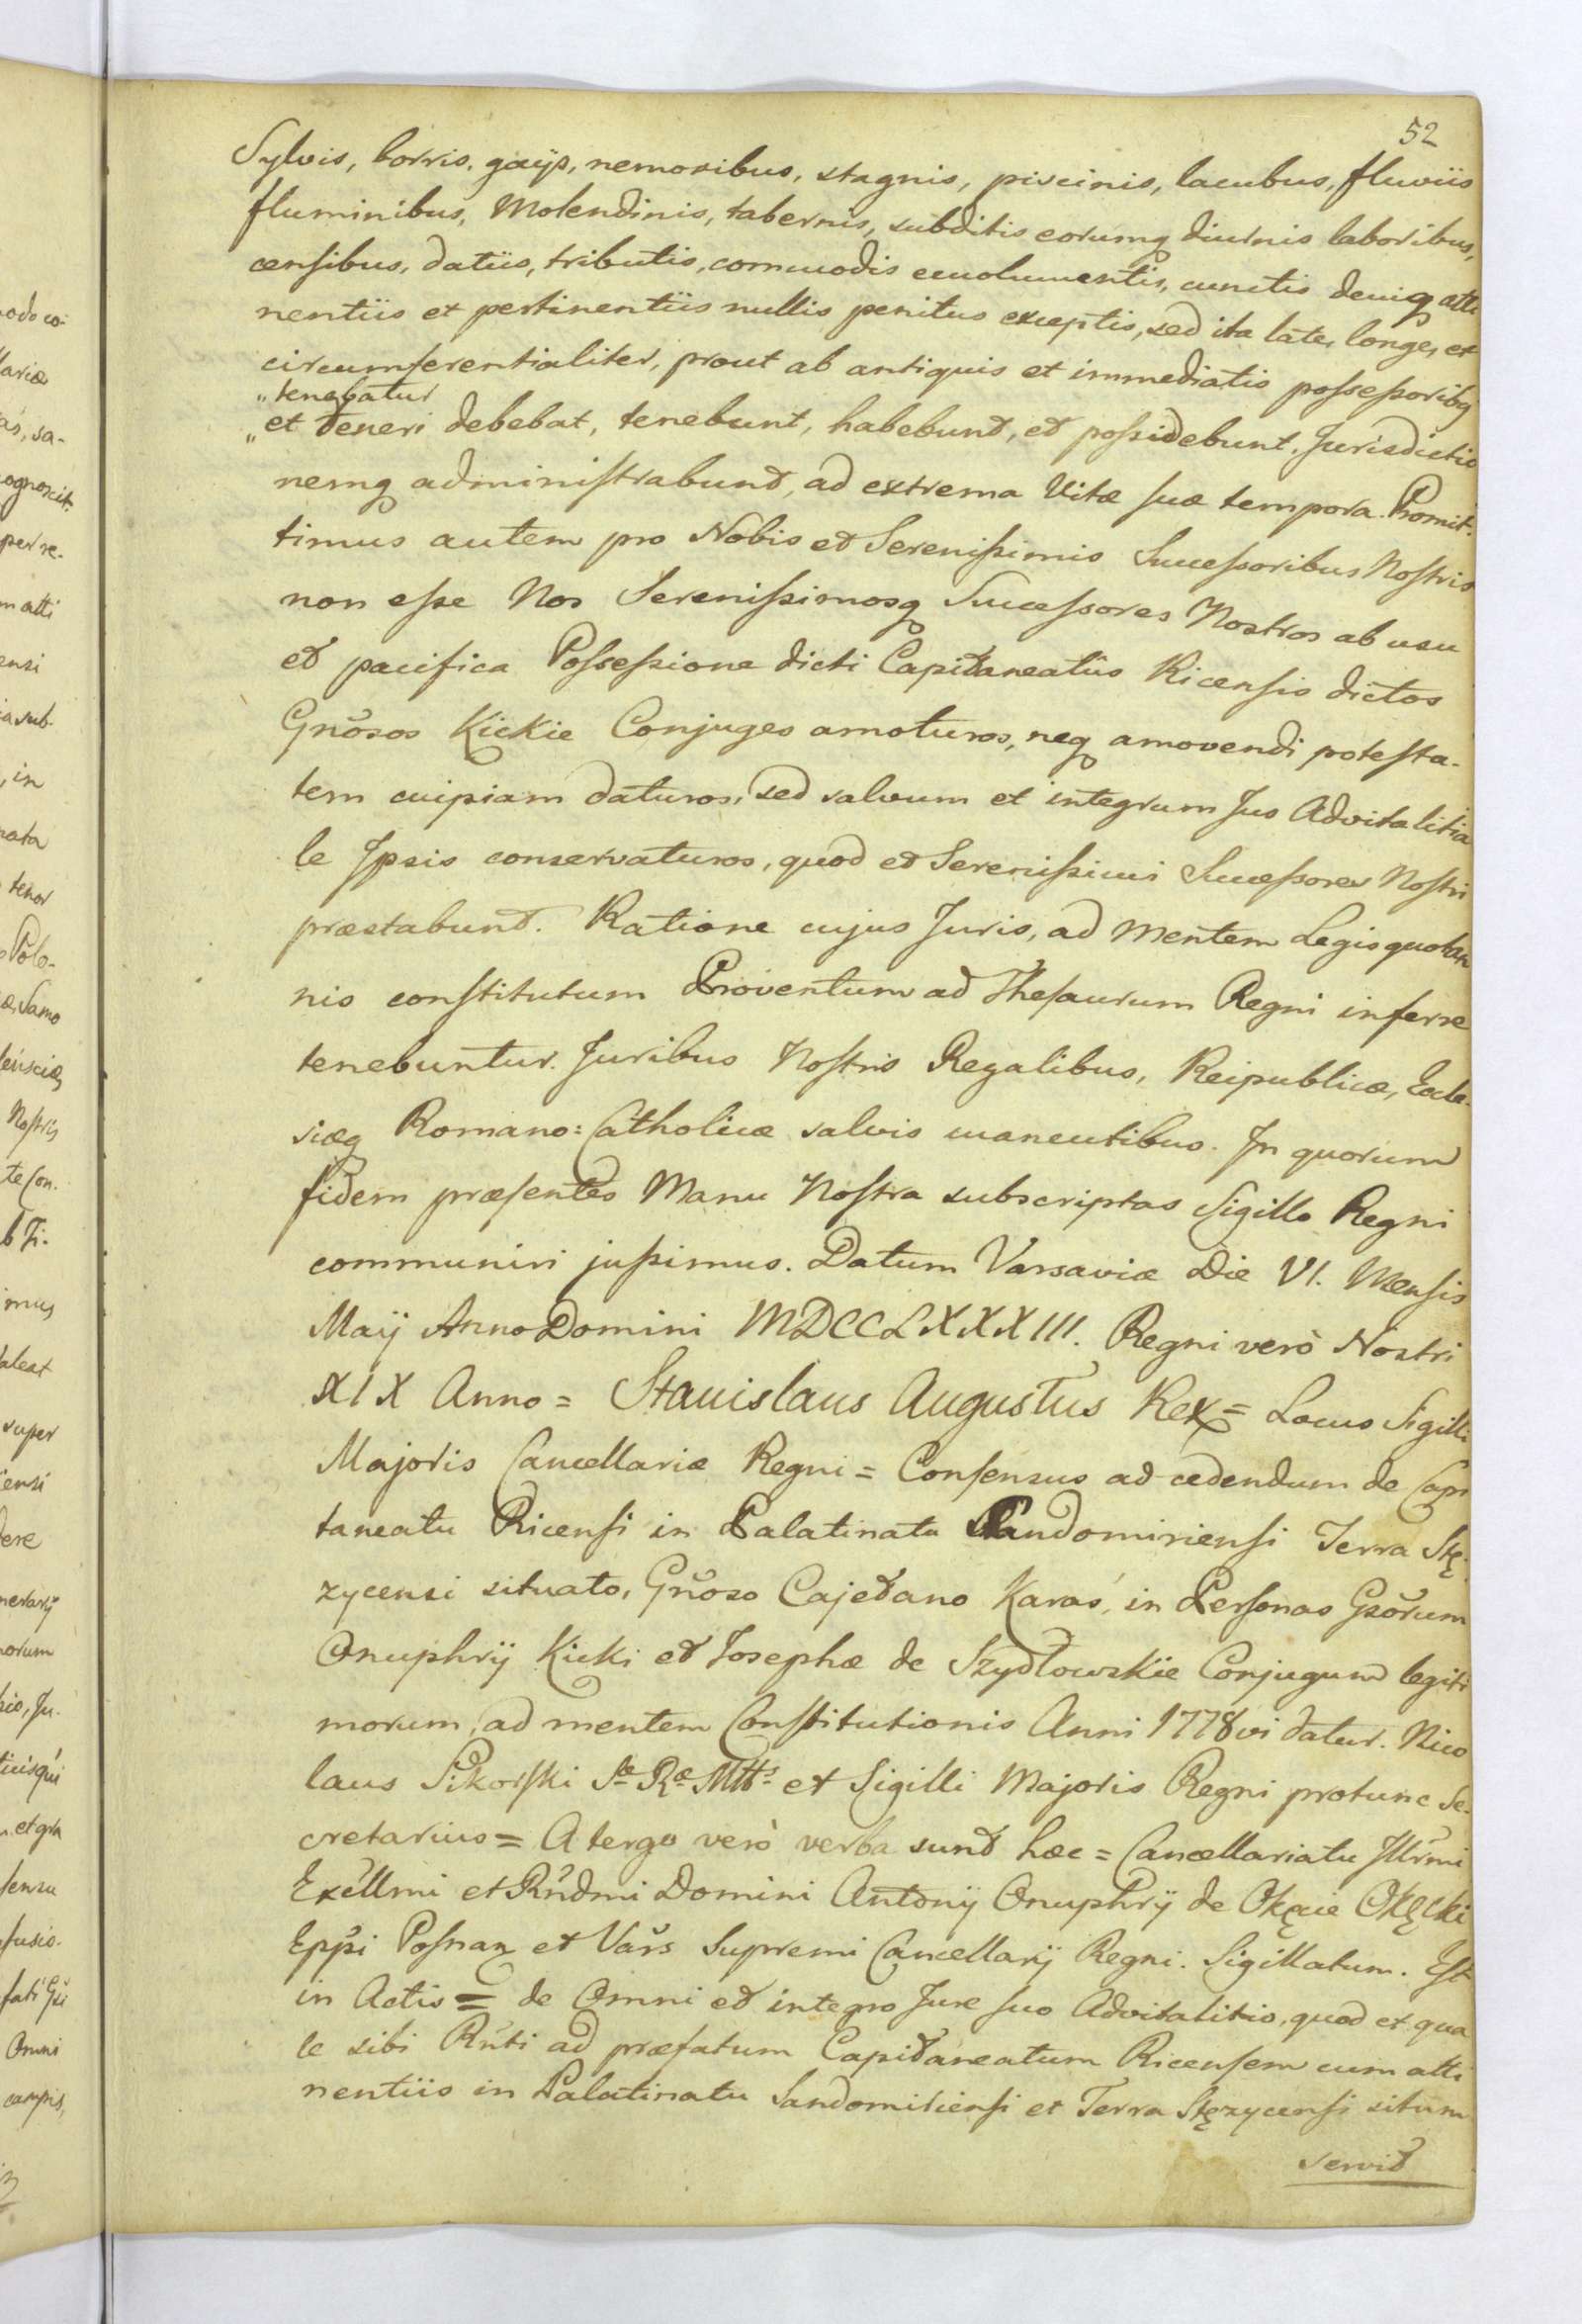 52
Sylvis, borris, gaijs, nemoribus, stagnis, piscinis, lacubus, fluviis
fluminibus, Molendinis, tabernis, subditis eorumq diurnis laboribus,
censibus, datiis, tributis, commodis emolumentis, cunctis deniq atti
nentiis et pertinentiis nullis penitus exceptis, sed ita late, longe, et
circumferentialiter, prout ab antiquis et immediatis poſseſsoribq
"tenebatur
"et teneri debebat, tenebunt, habebunt, et poſsidebunt. Jurisdictio
nemq adminiſtrabunt, ad extrema Vitæ ſuæ tempora. Promit:
timus autem pro Nobis et Sereniſsimis Succeſsoribus Noſtris
non eſse Nos Sereniſsimosq Succeſsores Nostros ab usu
et pacifica Poſseſsione dicti Capitaneatûs Ricenſis dictos
Gnõsos Kickie Conjuges amoturos, neq amovendi poteſta-
tem cuipiam daturos, sed salvum et integrum Jus Advitalitia
le Ipsis conservaturos, quod et Sereniſsimi Succeſsores Noſtri
præstabunt. Ratione cujus Juris, ad mentem Legis quotan
nis conſtitutum Proventum ad Theſaurum Regni inferre
tenebuntur. Juribus Noſtris Regalibus, Reipublicæ, Eccle-
siæq Romano: Catholicæ salvis manentibus. In quorum
fidem præſentes Manu Noſtra subscriptas Sigillo Regni
communiri juſsimus. Datum Varsaviæ Die VI. Menſis
Maij Anno Domini MDCCLXXXIII. Regni verò Nostri
XIX Anno = Stanislaus Augustus Rex = Locus Sigilli
Majoris Cancellariæ Regni = Conſensus ad cedendum de Capi
taneatu Ricenſi in Palatinatu Sandomirienſi Terra Stę-
zycensi situato, Gnõso Cajetano Karaś, in Perſonas Gsõrum
Onuphrij Kicki et Josephæ de Szydłowskie Conjugum legiti
morum, ad mentem Conſtitutionis Anni 1778vi datur. Nico
laus Sikorſki Sæ Ræ Mttis et Sigilli Majoris Regni protunc Se-
cretarius = A tergo verò verba sunt hæc = Cancellariatu Jllr̃mi
Excĩllmi et Rñdmi Domini Antonij Onuphrij de Okęcie Okęcki
Epp̃i Poſnan et Vars̃ Supremi Cancellarij Regni. Sigillatum. Eſt
in Actis = de Omni et integro Jure ſuo Advitalitio, quod et qua
le sibi Rñti ad præfatum Capitaneatum Ricenſem cum atti
nentiis in Palatinatu Sandomirienſi et Terra Stęzycenſi situm
servit